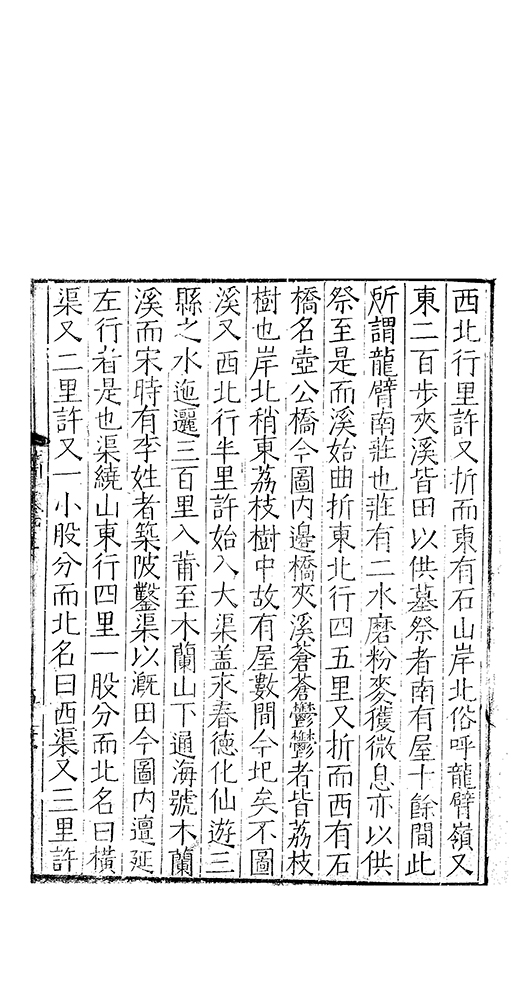 西北行里許又折而東有石山岸北俗呼龍臂嶺又
東二百步夾溪皆田以供墓祭者南有屋十餘間此
所謂龍臂南莊也莊有二水磨粉麥獲微息亦以供
祭至是而溪始曲折東北行四五里又折而西有石
橋名壺公橋今圖内邊橋夾溪蒼蒼鬱鬱者皆荔枝
樹也岸北稍東荔枝樹中故有屋數間今圯矣不圖
溪又西北行半里許始入大渠盖永春德化仙遊三
縣之水迤邐三百里入莆至木蘭山下通海號木蘭
溪而宋時有李姓者築陂鑿渠以溉田今圖内邅延
左行者是也渠繞山東行四里一股分而北名曰橫
渠又二里許又一小股分而北名曰西渠又三里許